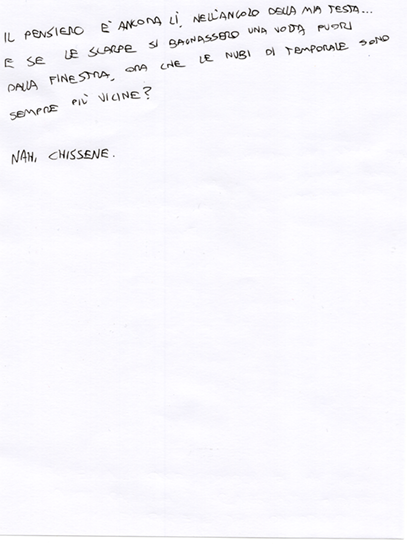 IL PENSIERO E' ANCORA LÌ, NELL'ANGOLO DELLA MIA TESTA...
E SE LE SCARPE SI BAGNASSERO UNA VOLTA FUORI
DALLA FINESTRA, ORA CHE LE NUBI DI TEMPORALE SONO
SEMPRE PIÙ VICINE?
NAH, CHISSENE.